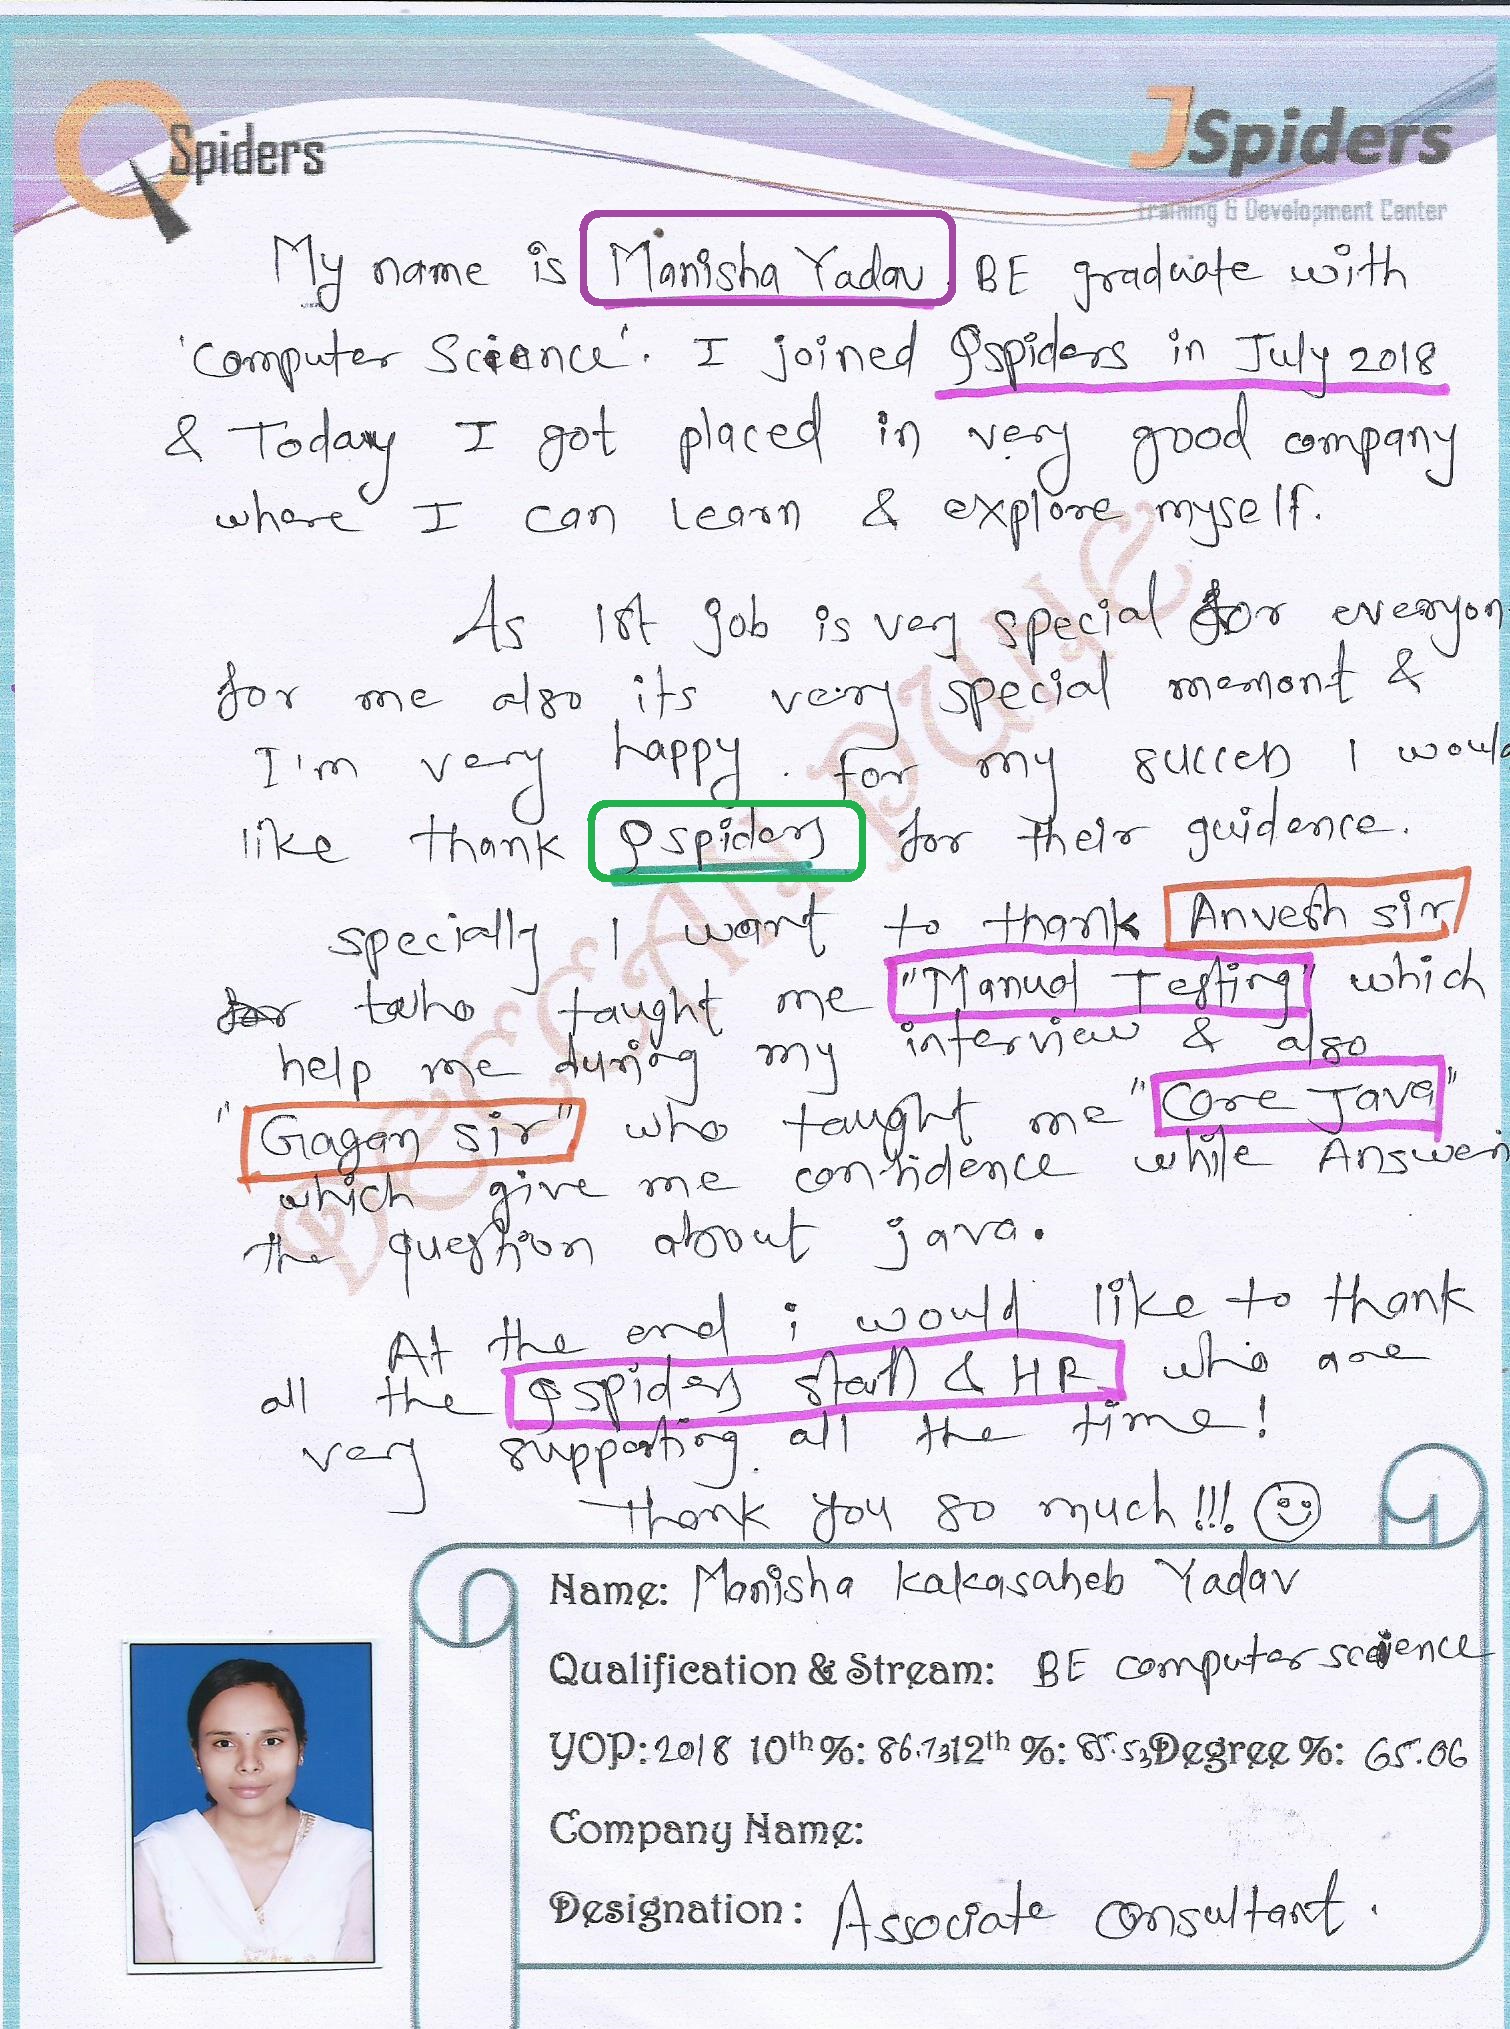 QSpiders
JSpiders
Training & Development Center
My name is Manisha Yadav. BE graduate with
'Computer Science'. I joined Qspiders in July 2018
& Today I got placed in very good company
where I can learn & explore myself.
As 1st job is very special for everyon
for me also its very special memont &
I'm very happy. for my success I would
like thank Qspiders for their guidence.
specially I want to thank Anvesh sir
who taught me "Manual Testing" which
help me during my interview & also
"Gagan sir" who taught me "Core Java"
which give me confidence while Answeri
the question about java.
At the end i would like to thank
all the Qspiders staff & HR who are
very supporting all the time!
Thank you so much!!!
DECCAN PUNE
Name: Manisha Kakasaheb Yadav
Qualification & Stream: BE computer science
YOP: 2018 10th %: 86.73 12th %: 85.53 Degree %: 65.06
Company Name:
Designation : Associate consultant.